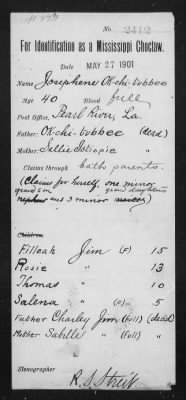 No. 2412
For Identification as a Mississippi Choctaw.
Date MAY 27 1901
Name Josephene Ok-chi-tubbee
Age 40 Blood full
Post Office, Pearl River, La.
Father: Ok-chi-tubbee (dead)
Mother: Sallie "
Claims through both parents.
(Claims for herself, one minor
grand son grand daughter
nephew and 3 minor nieces)
Children:
Filleah Jim (F) 15
Rosie " 13
Thomas " 10
Salena " (F) 5
Father Charley Jim (full) (dead)
Mother Sabille " (full) "
Stenographer
R. S. Streit